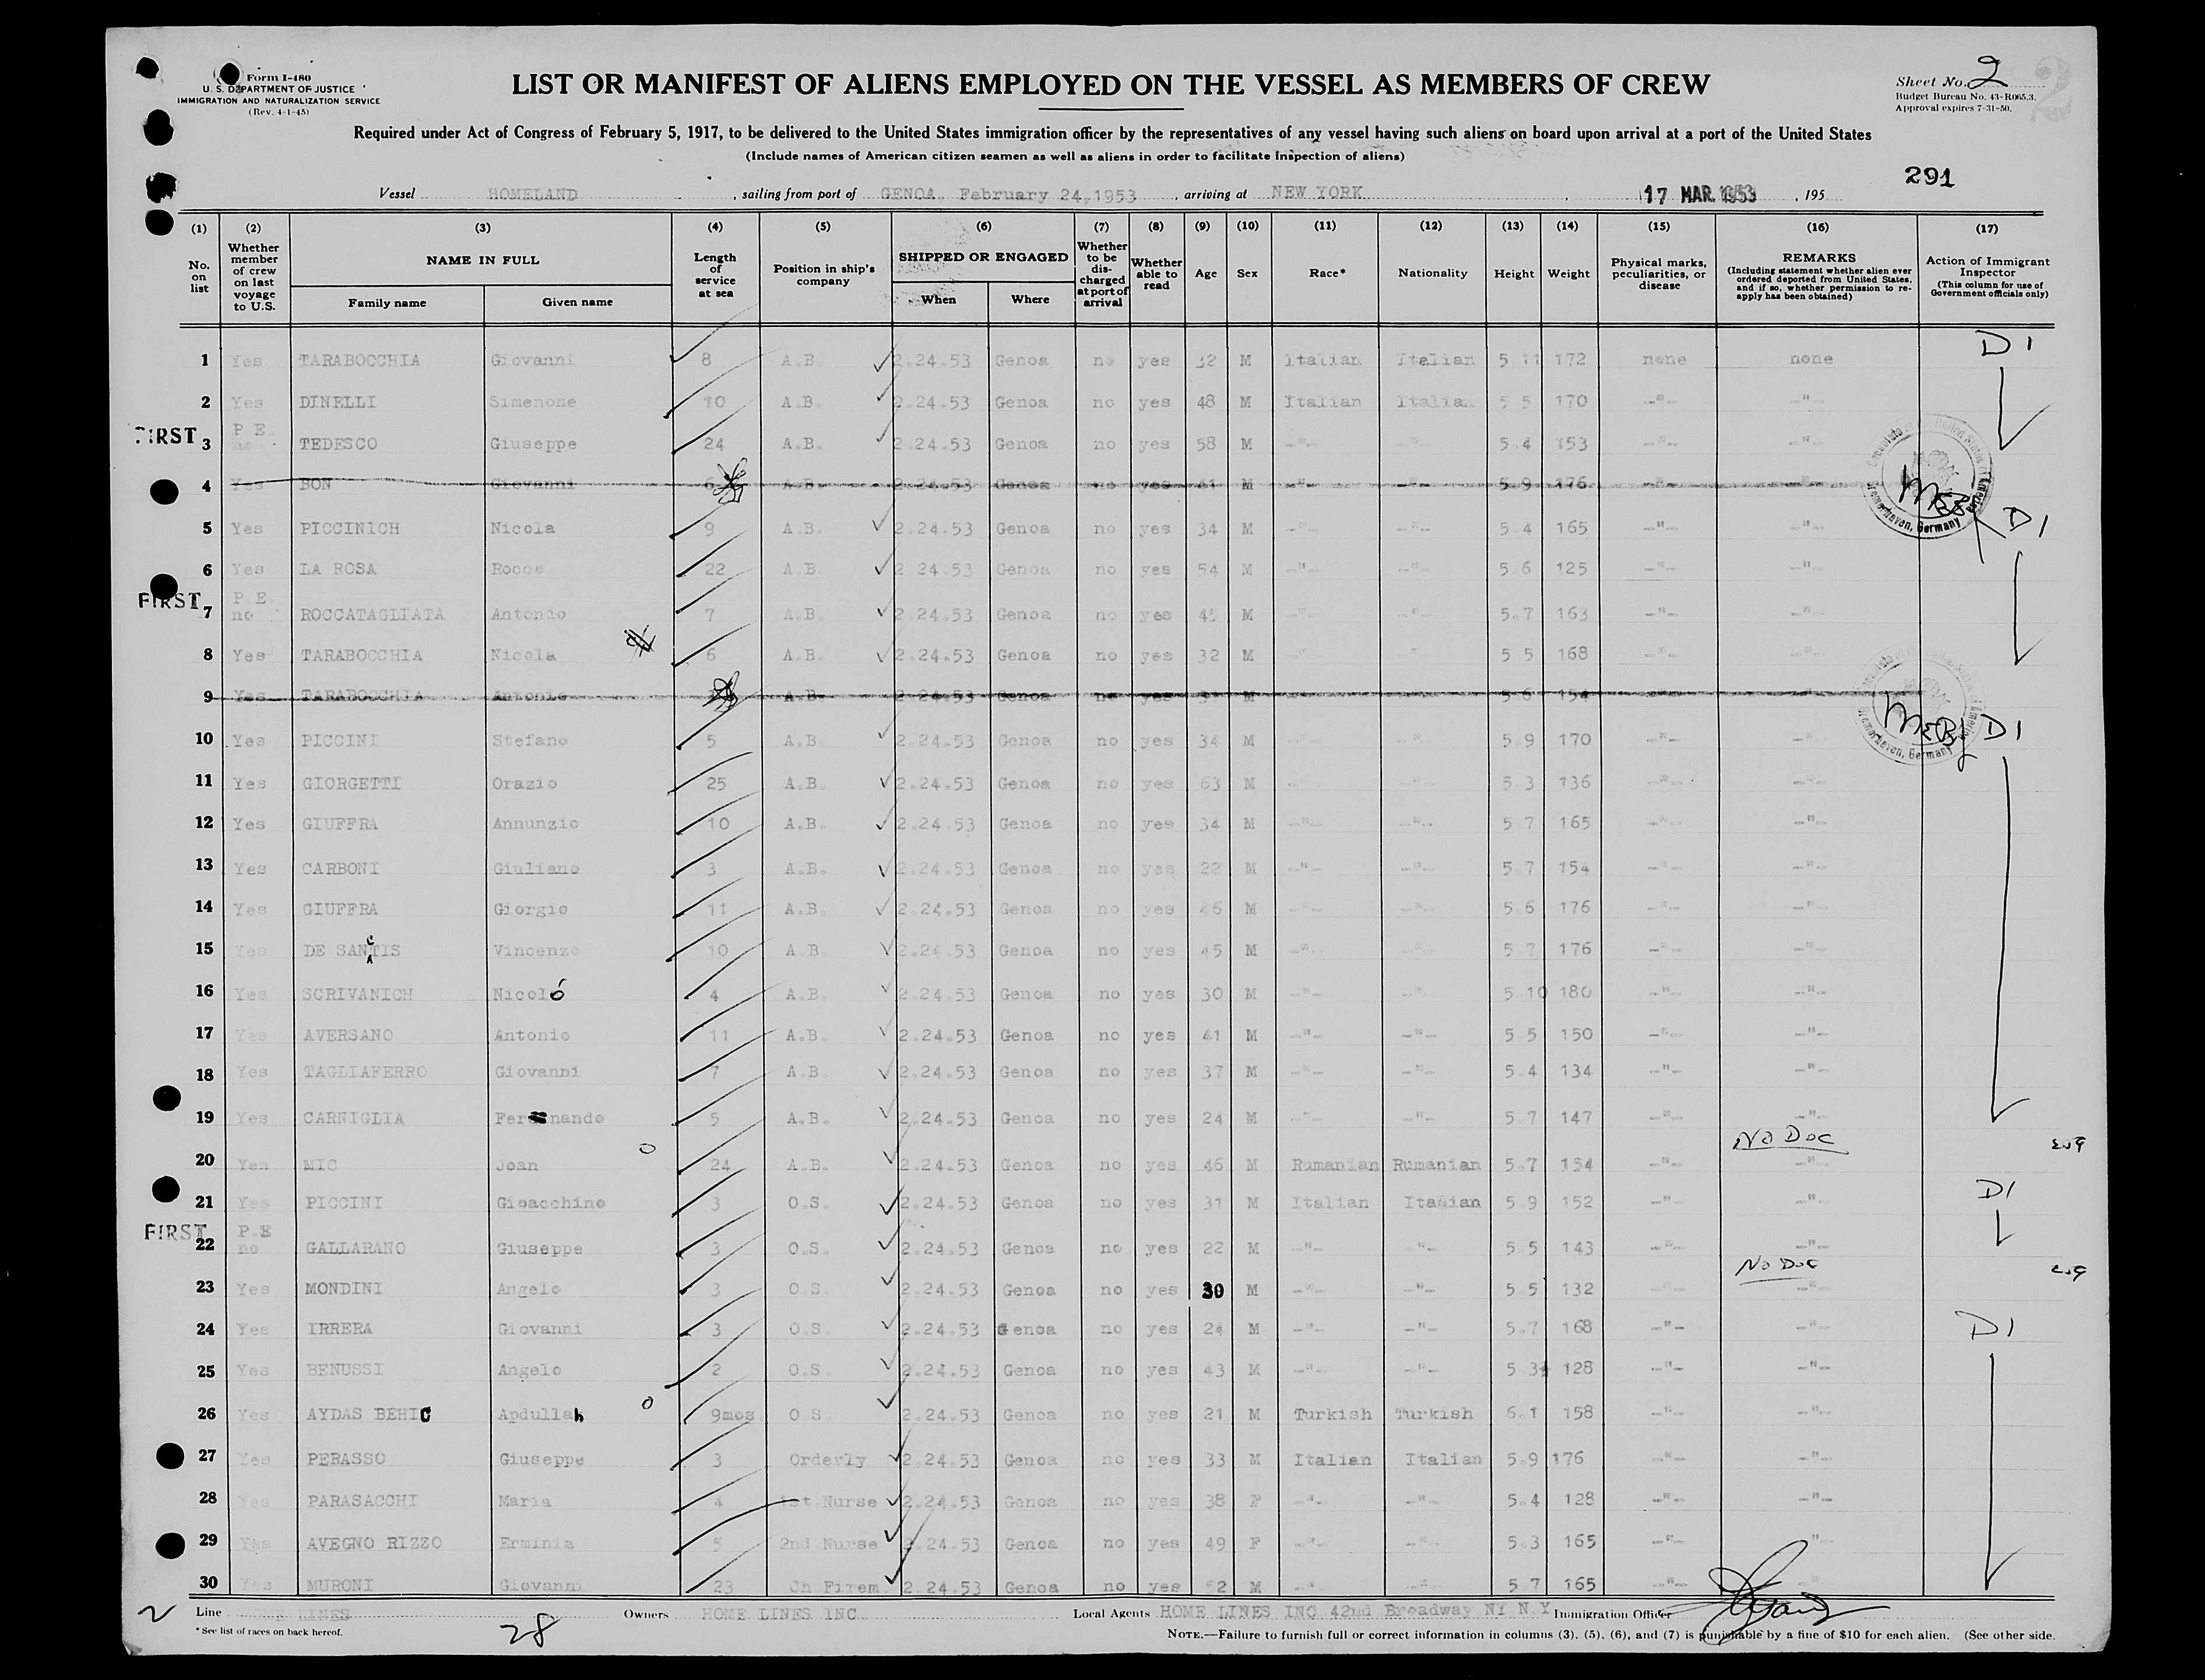 Form I-480
U. S. DEPARTMENT OF JUSTICE
IMMIGRATION AND NATURALIZATION SERVICE
(Rev. 4-1-45)
LIST OR MANIFEST OF ALIENS EMPLOYED ON THE VESSEL AS MEMBERS OF CREW
Sheet No. 2
Budget Bureau No. 43-R065.3.
Approval expires 7-31-50.
Required under Act of Congress of February 5, 1917, to be delivered to the United States immigration officer by the representatives of any vessel having such aliens on board upon arrival at a port of the United States
(Include names of American citizen seamen as well as aliens in order to facilitate inspection of aliens)
291
Vessel HOMELAND, sailing from port of GENOA, February 24, 1953, arriving at NEW YORK, 17 MAR. 1953, 195
(1) No. on list
(2) Whether member of crew on last voyage to U.S.
(3) NAME IN FULL Family name Given name
(4) Length of service at sea
(5) Position in ship's company
(6) SHIPPED OR ENGAGED When Where
(7) Whether to be discharged at port of arrival
(8) Whether able to read
(9) Age
(10) Sex
(11) Race*
(12) Nationality
(13) Height
(14) Weight
(15) Physical marks, peculiarities, or disease
(16) REMARKS (Including statement whether alien ever ordered deported from United States, and if so, whether permission to reapply has been obtained)
(17) Action of Immigrant Inspector (This column for use of Government officials only)
1 Yes TARABOCCHIA Giovanni 8 A.B. 2.24.53 Genoa no yes 32 M Italian Italian 5 11 172 none none D1
2 Yes DINELLI Simenone 10 A.B. 2.24.53 Genoa no yes 48 M Italian Italian 5 5 170 -"- -"-
FIRST 3 P.E. no TEDESCO Giuseppe 24 A.B. 2.24.53 Genoa no yes 58 M -"- -"- 5 4 153 -"- -"-
4 Yes BON Giovanni 6 A.B. 2.24.53 Genoa no yes 41 M -"- -"- 5.9 176 -"- -"-
Bremerhaven, Germany
5 Yes PICCINICH Nicola 9 A.B. 2.24.53 Genoa no yes 34 M -"- -"- 5 4 165 -"- -"- D1
6 Yes LA ROSA Rocco 22 A.B. 2.24.53 Genoa no yes 54 M -"- -"- 5 6 125 -"- -"-
FIRST 7 P.E. no ROCCATAGLIATA Antonio 7 A.B. 2.24.53 Genoa no yes 45 M -"- -"- 5.7 163 -"- -"-
8 Yes TARABOCCHIA Nicola 6 A.B. 2.24.53 Genoa no yes 32 M -"- -"- 5 5 168 -"- -"-
9 Yes TARABOCCHIA Antonio A.B. 2.24.53 Genoa no yes M 5 6 154
Bremerhaven, Germany
10 Yes PICCINI Stefano 5 A.B 2.24.53 Genoa no yes 34 M -"- -"- 5.9 170 -"- -"- D1
11 Yes GIORGETTI Orazio 25 A.B. 2.24.53 Genoa no yes 63 M -"- -"- 5 3 136 -"- -"-
12 Yes GIUFFRA Annunzio 10 A.B. 2.24.53 Genoa no yes 34 M -"- -"- 5 7 165 -"- -"-
13 Yes CARBONI Giuliano 3 A.B. 2.24.53 Genoa no yes 22 M -"- -"- 5 7 154 -"- -"-
14 Yes GIUFFRA Giorgio 11 A.B. 2.24.53 Genoa no yes 46 M -"- -"- 5 6 176 -"- -"-
15 Yes DE SANCTIS Vincenzo 10 A B 2.24.53 Genoa no yes 45 M -"- -"- 5 7 176 -"- -"-
16 Yes SCRIVANICH Nicoló 4 A.B. 2.24.53 Genoa no yes 30 M -"- -"- 5 10 180 -"- -"-
17 Yes AVERSANO Antonio 11 A.B. 2.24.53 Genoa no yes 41 M -"- -"- 5 5 150 -"- -"-
18 Yes TAGLIAFERRO Giovanni 7 A.B. 2.24.53 Genoa no yes 37 M -"- -"- 5.4 134 -"- -"-
19 Yes CARNIGLIA Fernando 5 A.B. 2.24.53 Genoa no yes 24 M -"- -"- 5.7 147 -"- -"-
No Doc
20 Yes MIC Joan 24 A.B. 2.24.53 Genoa no yes 46 M Rumanian Rumanian 5.7 154 -"- -"-
21 Yes PICCINI Gioacchino 3 O.S. 2.24.53 Genoa no yes 31 M Italian Italian 5 9 152 -"- -"- D1
FIRST 22 P.E no GALLARANO Giuseppe 3 O.S. 2.24.53 Genoa no yes 22 M -"- -"- 5.5 143 -"- -"-
No Doc
23 Yes MONDINI Angelo 3 O.S. 2.24.53 Genoa no yes 30 M -"- -"- 5.5 132 -"- -"-
24 Yes IRRERA Giovanni 3 O.S. 2.24.53 Genoa no yes 24 M -"- -"- 5.7 168 -"- -"- D1
25 Yes BENUSSI Angelo 2 O.S. 2.24.53 Genoa no yes 43 M -"- -"- 5.3½ 128 -"- -"-
26 Yes AYDAS BEHIC Apdullah 9mos O S. 2.24.53 Genoa no yes 21 M Turkish Turkish 6.1 158 -"- -"-
27 Yes PERASSO Giuseppe 3 Orderly 2.24.53 Genoa no yes 33 M Italian Italian 5.9 176 -"- -"-
28 Yes PARASACCHI Maria 4 1st Nurse 2.24.53 Genoa no yes 38 F -"- -"- 5.4 128 -"- -"-
29 Yes AVEGNO RIZZO Erminia 5 2nd Nurse 2.24.53 Genoa no yes 49 F -"- -"- 5.3 165 -"- "
30 Yes MURONI Giovanni 23 Ch Firem. 2.24.53 Genoa no yes 52 M -"- -"- 5 7 165 -"-
2 Line HOME LINES Owners HOME LINES INC. Local Agents HOME LINES INC 42nd Broadway NY N Y Immigration Officer
* See list of races on back hereof.
28
NOTE.—Failure to furnish full or correct information in columns (3), (5), (6), and (7) is punishable by a fine of $10 for each alien. (See other side.